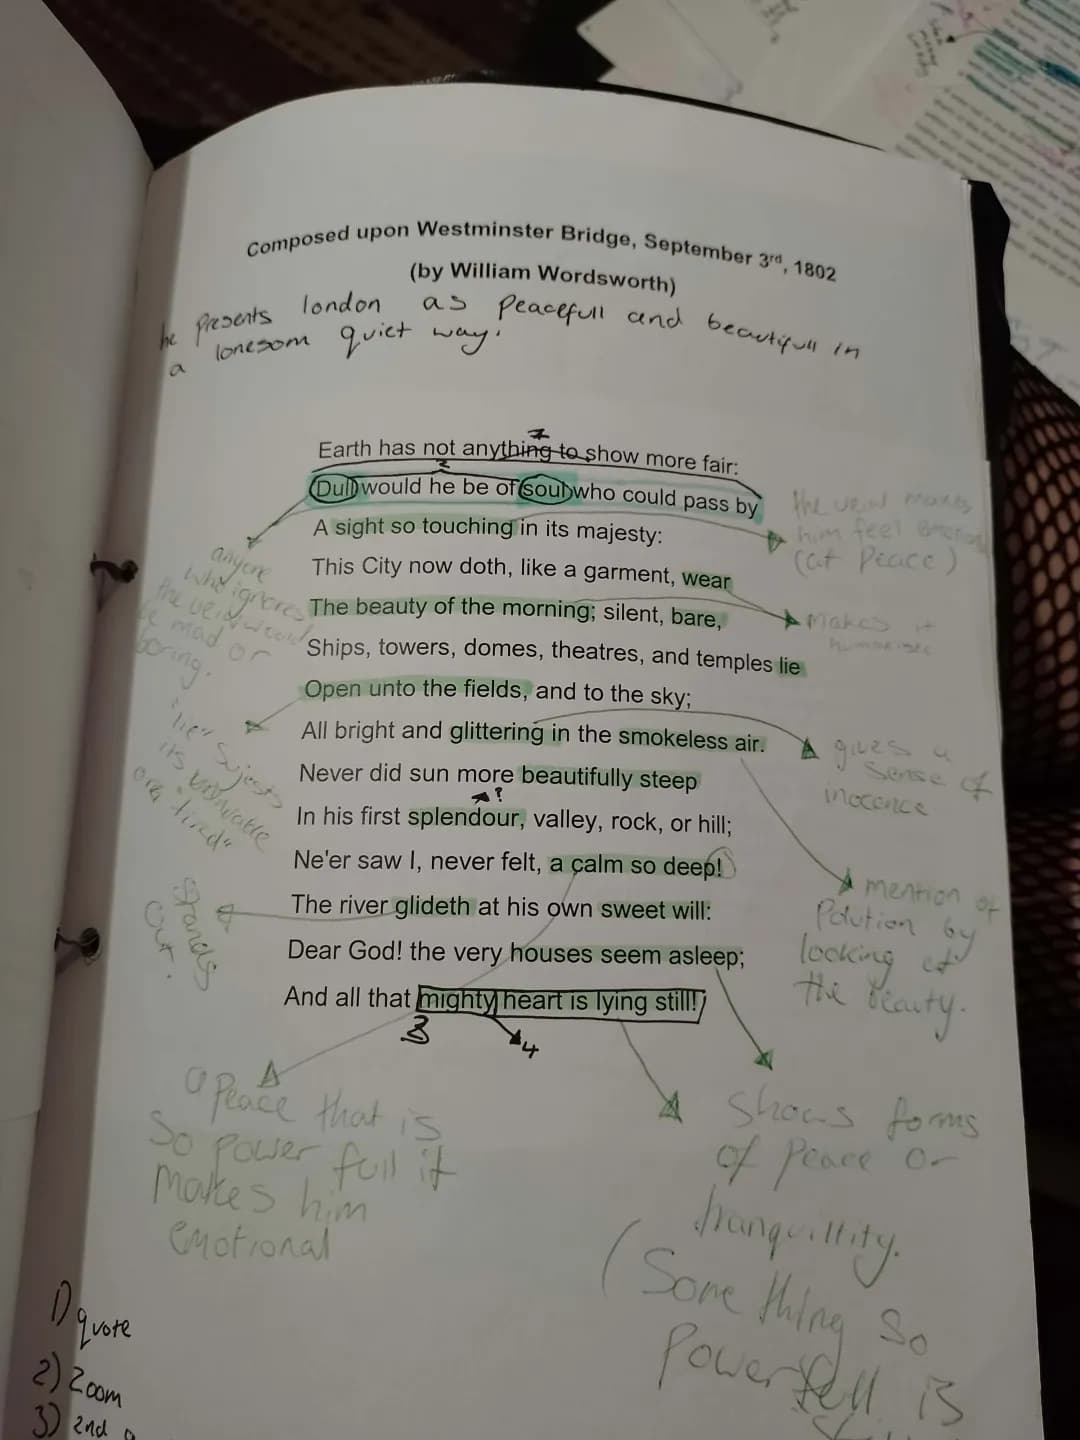 Composed upon Westminster Bridge, September 3rd, 1802
(by William Wordsworth)
he presents london as peacefull and beautifull in
a lonesom quiet way.
Earth has not anything to show more fair:
2
Dull would he be of soul who could pass by
A sight so touching in its majesty:
This City now doth, like a garment, wear
The beauty of the morning; silent, bare,
Ships, towers, domes, theatres, and temples lie
Open unto the fields, and to the sky;
All bright and glittering in the smokeless air.
Never did sun more beautifully steep
?
In his first splendour, valley, rock, or hill;
Ne'er saw I, never felt, a calm so deep!
The river glideth at his own sweet will:
Dear God! the very houses seem asleep;
And all that mighty heart is lying still!
3
4
the veiw makes
him feel
(at peace)
anyone
who ignores
the veiw would
be mad or
boring.
makes it
"lie" sujests
its
or "tired"
gives a
sense of
inocence
mention of
Polution by
looking at
the beauty.
Stands
out.
a Peace that is
So power full it
makes him
emotional
Shows forms
of peace or
tranquillity.
(Some thing so
Powerfull is
1) quote
2) Zoom
3) 2nd